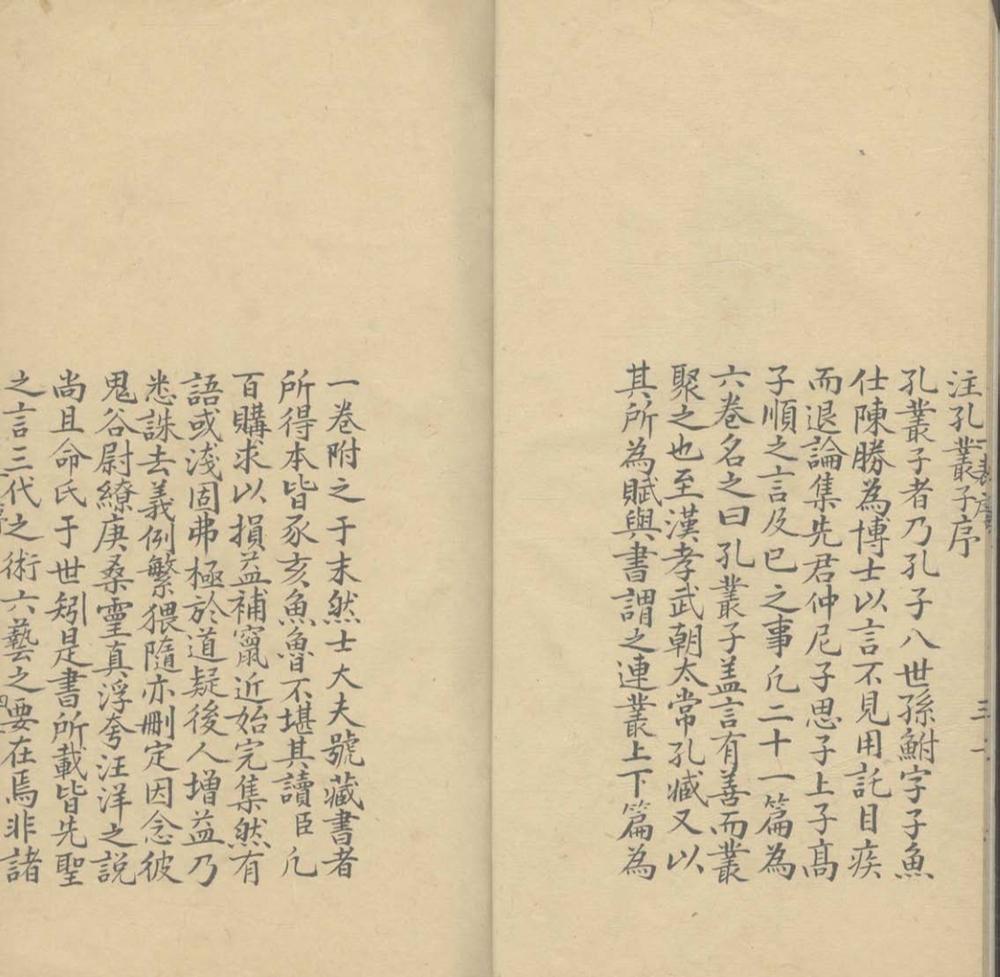 注孔叢子序
孔叢子者乃孔子八世孫鮒字子魚
仕陳勝為博士以言不見用託目疾
而退論集先君仲尼子思子上子高
子順之言及已之事凢二十一篇為
六卷名之曰孔叢子盖言有善而叢
聚之也至漢孝武朝太常孔臧又以
其所為賦與書謂之連叢上下篇為
一卷附之于末然士大夫號藏書者
所得本皆豕亥魚魯不堪其讀臣凢
百購求以損益補竄近始完集然有
語或淺固弗極於道疑後人增益乃
悉誅去義例繁猥隨亦刪定因念彼
鬼谷尉繚庚桑靈真浮夸汪洋之説
尚且命氏于世矧是書所載皆先聖
之言三代之術六藝之要在焉非諸